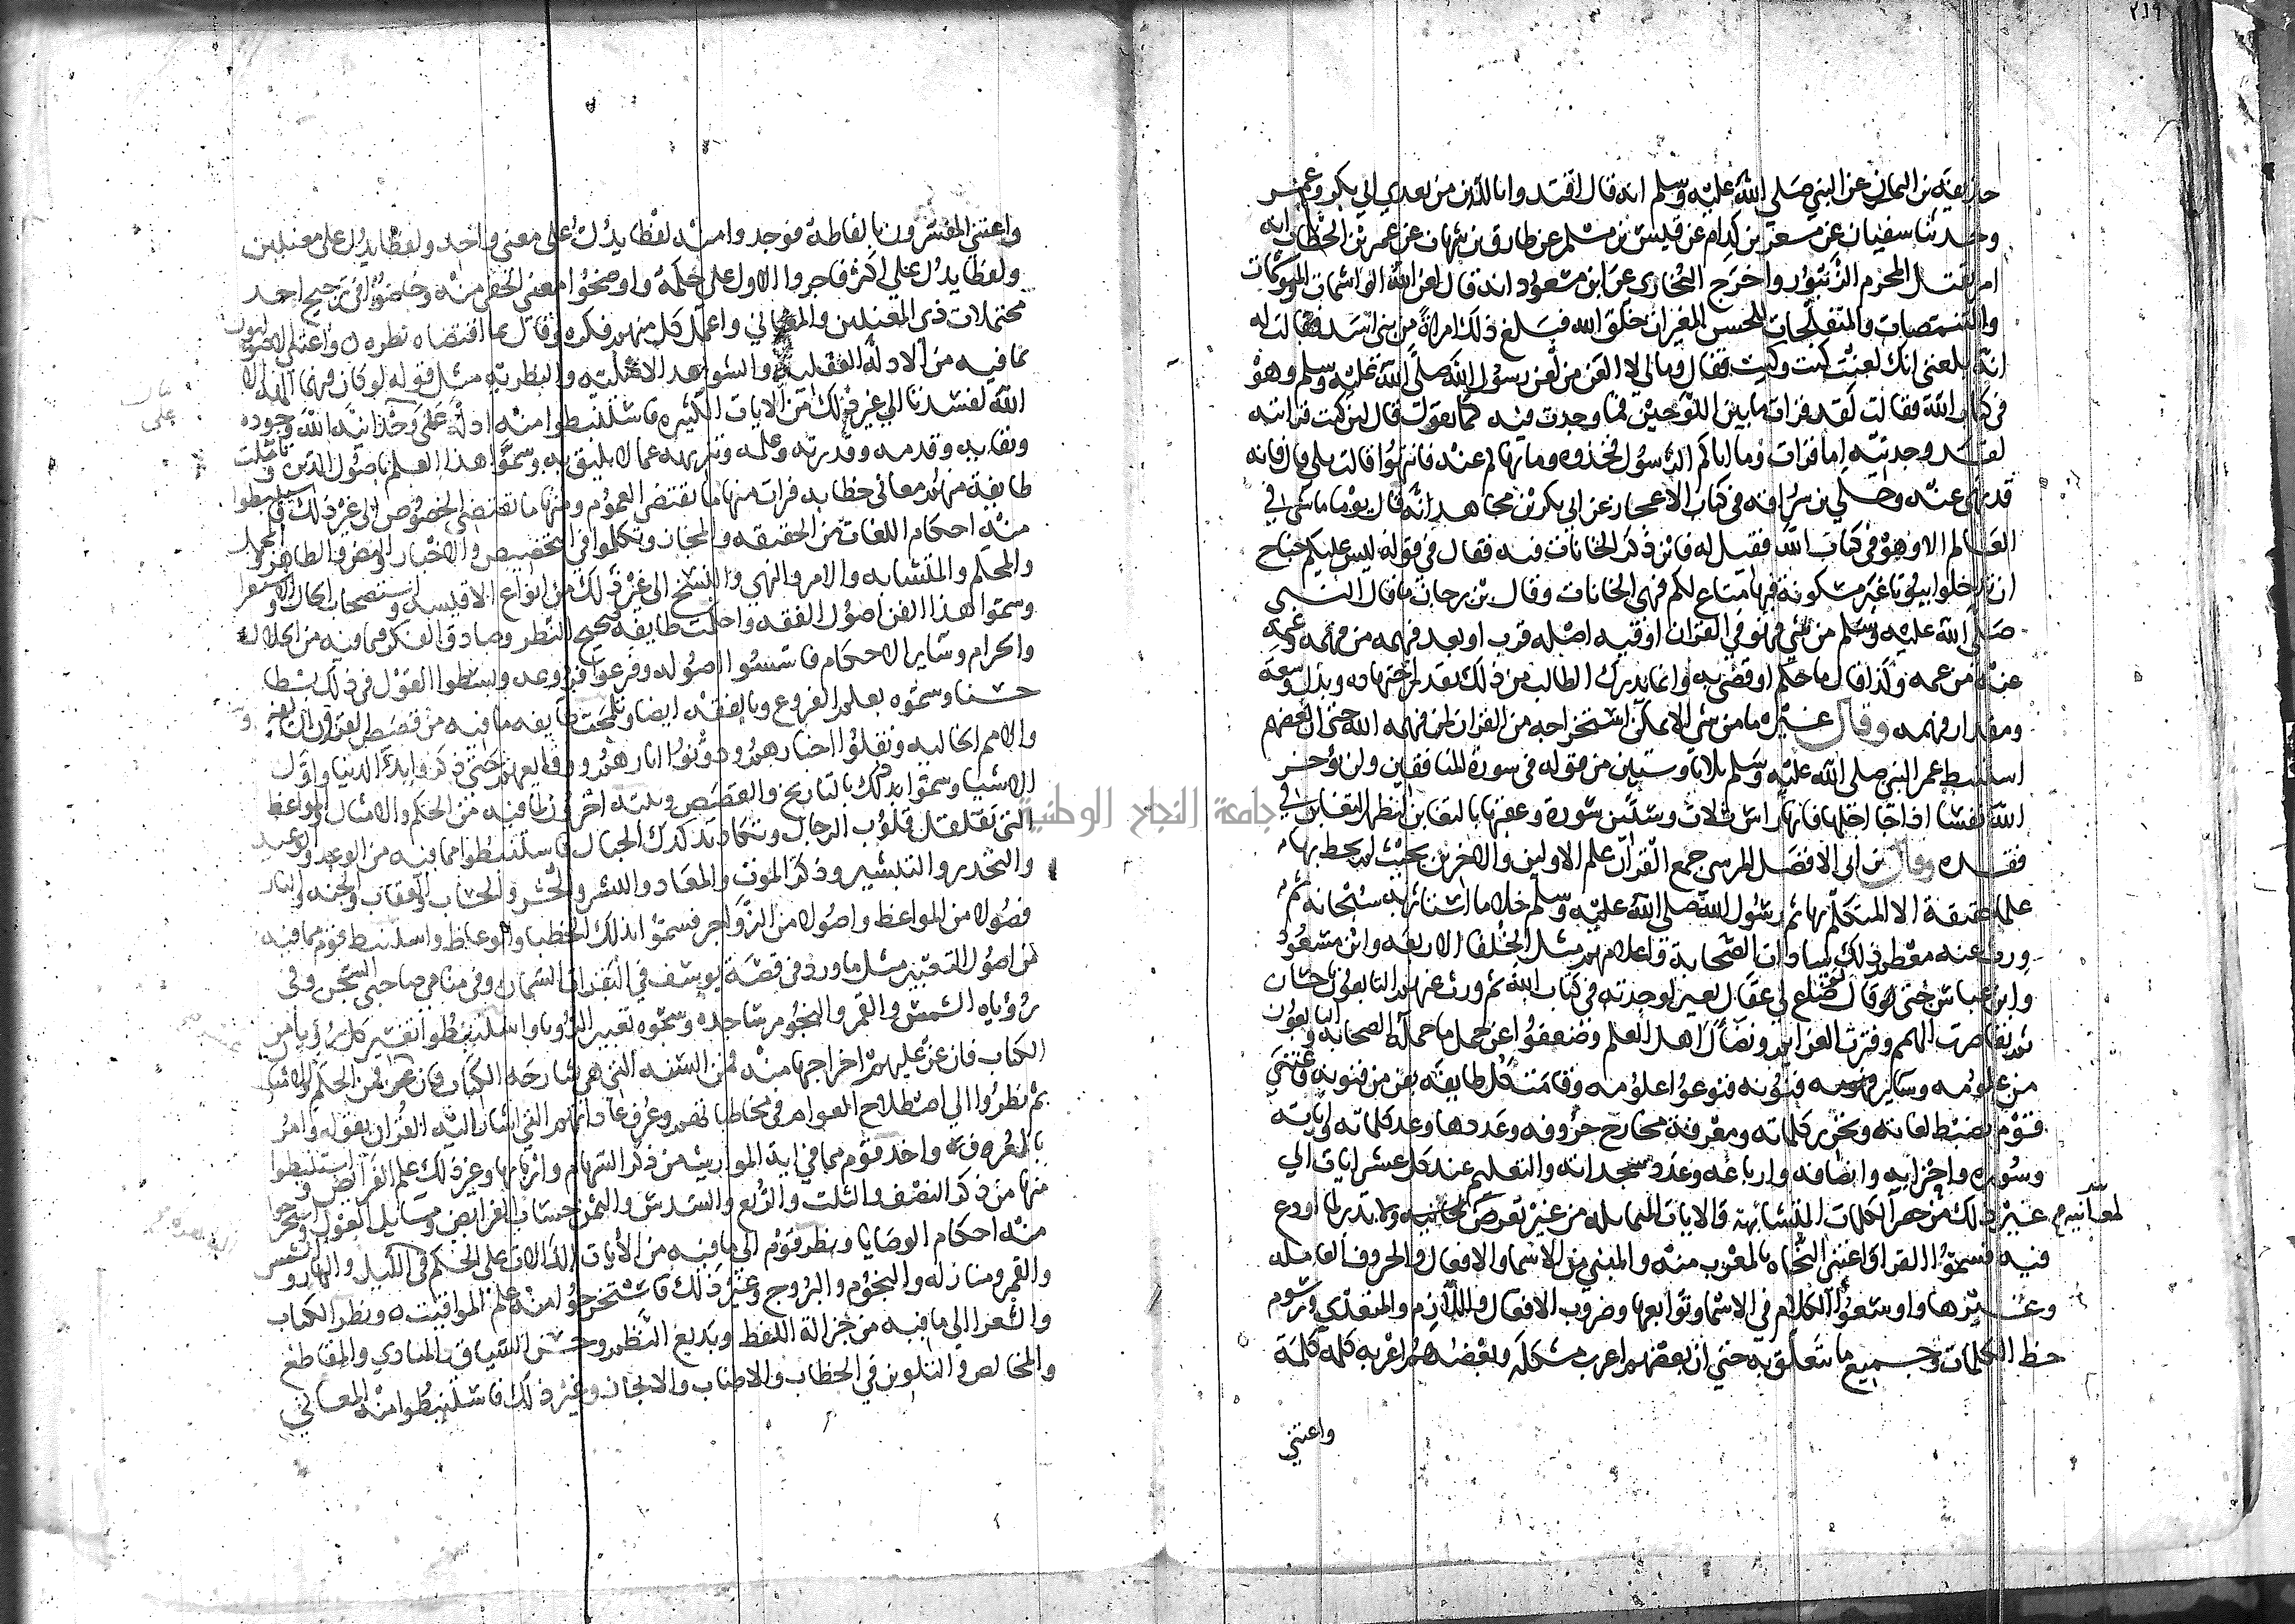 ٢١٩
حذيفة بن اليماني عن النبي صلي الله عليه وسلم انه قال اقتدوا باللذين من بعدي ابي بكر وعمر
وحدثنا سفيان عن مسعر بن كدام عن قيس بن مسلم عن طارق بن شهاب عن عمر بن الخطاب انه
امر بقتل المحرم الزنبور واخرج البخاري عن ابن مسعود انه قال لعن الله الواشمات والموتشمات
والمتنمصات والمتفلجات للحسن المغيرات خلق الله فبلغ ذلك امراة من بني اسد فقالت له
انه بلغني انك لعنت كيت وكيت فقال ومالي لا العن من لعن رسول الله صلي الله عليه وسلم وهو
في كتاب الله فقالت لقد قرات ما بين اللوحين فما وجدت فيه كما تقول قال لين كنت قراتيه
لقد وجدتيه اما قرات وما اتاكم الرسول فخذوه وما نهاكم عنه فانتهوا قالت بلي قال فانه
قد نهي عنه وحكي بن سراقه في كتاب الاعجاز عن ابي بكر بن مجاهد انه قال يوما ما شي في
العالم الا وهو في كتاب الله فقيل له فاين ذكر الخانات فيه فقال في قوله ليس عليكم جناح
ان تدخلوا بيوتا غير مسكونة فيها متاع لكم فهي الخانات وقال بن برجان ما قال النبي
صلي الله عليه وسلم من شي فهو في القران او فيه اصله قرب او بعد فهمه من فهمه وعمه
عنه من عمه وكذا قال ما حكم او قضي به وانما يدرك الطالب من ذلك بقدر اجتهاده وبذل وسعه
ومقدار فهمه وقال غيره ما من شي الا يمكن استخراجه من القران لمن فهمه الله حتي ان بعضهم
استنبط عمر النبي صلي الله عليه وسلم ثلاثا وستين من قوله في سورة المنافقين ولن يؤخر
الله نفسا اذا جا اجلها فانها راس ثلاث وستين سورة وعقبها بالتغابن ليظهر التغابن في
فقده وقال بن ابي الافضل المرسي جمع القران علم الاولين والاخرين بحيث لم يحط بها
علما حقيقة الا المتكلم بها ثم رسول الله صلي الله عليه وسلم خلا ما استاثر به سبحانه ثم
ورث عنه معظم ذلك سادات الصحابة واعلامهم مثل الخلفا الاربعه وابن مسعود
وابن عباس حتي قال لو ضاع لي عقال بعير لوجدته في كتاب الله ثم ورث عنهم التابعون باحسان
ثم تقاصرت الهمم وفترت العزايم وتضال اهل العلم وضعفوا عن حمل ما حمله الصحابة والتابعون
من علومه وساير فنونه فنوعوا علومه وقامت كل طايفه بفن من فنونه فاعتني
قوم بضبط لغاته وتحرير كلماته ومعرفة مخارج حروفه وعددها وعد كلماته واياته
وسوره واحزابه وانصافه وارباعه وعدد سجداته والتعليم عند كل عشر ايات الي
غير ذلك من حصر الكلمات المتشابهة والايات المتماثله من غير تعرض لمعانيه ولا تدبر لما اودع
فيه فسموا القرا واعتني النحاه بالمعرب منه والمبني من الاسما والافعال والحروف العامله
وغيرها واوسعوا الكلام في الاسما وتوابعها وضروب الافعال واللازم والمتعدي ورسوم
خط الكلمات وجميع ما يتعلق به حتي ان بعضهم اعرب مشكله وبعضهم اعربه كلمة كلمة
واعتني
واعتني المفسرون بالفاظه فوجدوا منه لفظا يدل علي معني واحد ولفظا يدل علي معنيين
ولفظا يدل علي اكثر فاجروا الاول علي حكمه واوضحوا معني الخفي منه وخاضوا في ترجيح احد
محتملات ذي المعنيين والمعاني واعمل كل منهم فكره وقال بما اقتضاه نظره واعتني الاصوليون
بما فيه من الادلة العقليه والشواهد الاصليه والنظريه مثل قوله لو كان فيهما الهة الا
الله لفسدتا الي غير ذلك من الايات الكثيره فاستنبطوا منه ادلة علي وحدانية الله ووجوده
وبقايه وقدمه وقدرته وعلمه وتنزيهه عما لا يليق به وسموا هذا العلم باصول الدين وتاملت
طايفة منهم معاني خطابه فرات منها ما يقتضي العموم ومنها ما يقتضي الخصوص الي غير ذلك فاستنبطوا
منه احكام اللغات من الحقيقه والمجاز وتكلموا في التخصيص والاخبار والنص والظاهر والمجمل
والمحكم والمتشابه والامر والنهي والنسخ الي غير ذلك من انواع الاقيسه واستصحاب الحال والاستقرا
وسموا هذا الفن اصول الفقه واحكمت طايفة صحيح النظر وصادق الفكر فيما فيه من الحلال
والحرام وساير الاحكام فاسسوا اصوله وفرعوا فروعه وبسطوا القول في ذلك بسطا
حسنا وسموه بعلم الفروع وبالفقه ايضا وتلمحت طايفه ما فيه من قصص القرون السالفه
والامم الخاليه ونقلوا اخبارهم ودونوا اثارهم ووقايعهم حتي ذكروا بدء الدنيا واول
الاشيا وسموا ذلك بالتاريخ والقصص وتنبه اخرون لما فيه من الحكم والامثال والمواعظ
التي تقلقل قلوب الرجال وتكاد تدكدك الجبال فاستنبطوا مما فيه من الوعد والوعيد
والتحذير والتبشير وذكر الموت والمعاد والنشر والحشر والحساب والعقاب والجنه والنار
فصولا من المواعظ واصولا من الزواجر فسموا بذلك الخطبا والوعاظ واستنبط قوم مما فيه
من اصول التعبير مثل ما ورد في قصة يوسف في البقرات السمان وفي منامي صاحبي السجن وفي
رؤياه الشمس والقمر والنجوم ساجده وسموه تعبير الرؤيا واستنبطوا تفسير كل رؤيا من
الكتاب فان عز عليهم اخراجها منه فمن السنه التي هي شارحة الكتاب فان عسر فمن الحكم والامثال
ثم نظروا الي اصطلاح العوام في مخاطباتهم وعرف عاداتهم الذي اشار اليه القران بقوله وامر
بالعرف واخذ قوم مما في اية المواريث من ذكر السهام واربابها وغير ذلك علم الفرايض واستنبطوا
منها من ذكر النصف والثلث والربع والسدس والثمن حساب الفرايض ومسايل العول واستخرجوا
منه احكام الوصايا ونظر قوم الي ما فيه من الايات الدالات علي الحكم في الليل والنهار والشمس
والقمر ومنازله والنجوم والبروج وغير ذلك فاستخرجوا منه علم المواقيت ونظر الكتاب
والشعرا الي ما فيه من جزالة اللفظ وبديع النظم وحسن السياق والمبادي والمقاطع
والمخالص والتلوين في الخطاب والاطناب والايجاز وغير ذلك فاستنبطوا منه المعاني
جامعة النجاح الوطنية